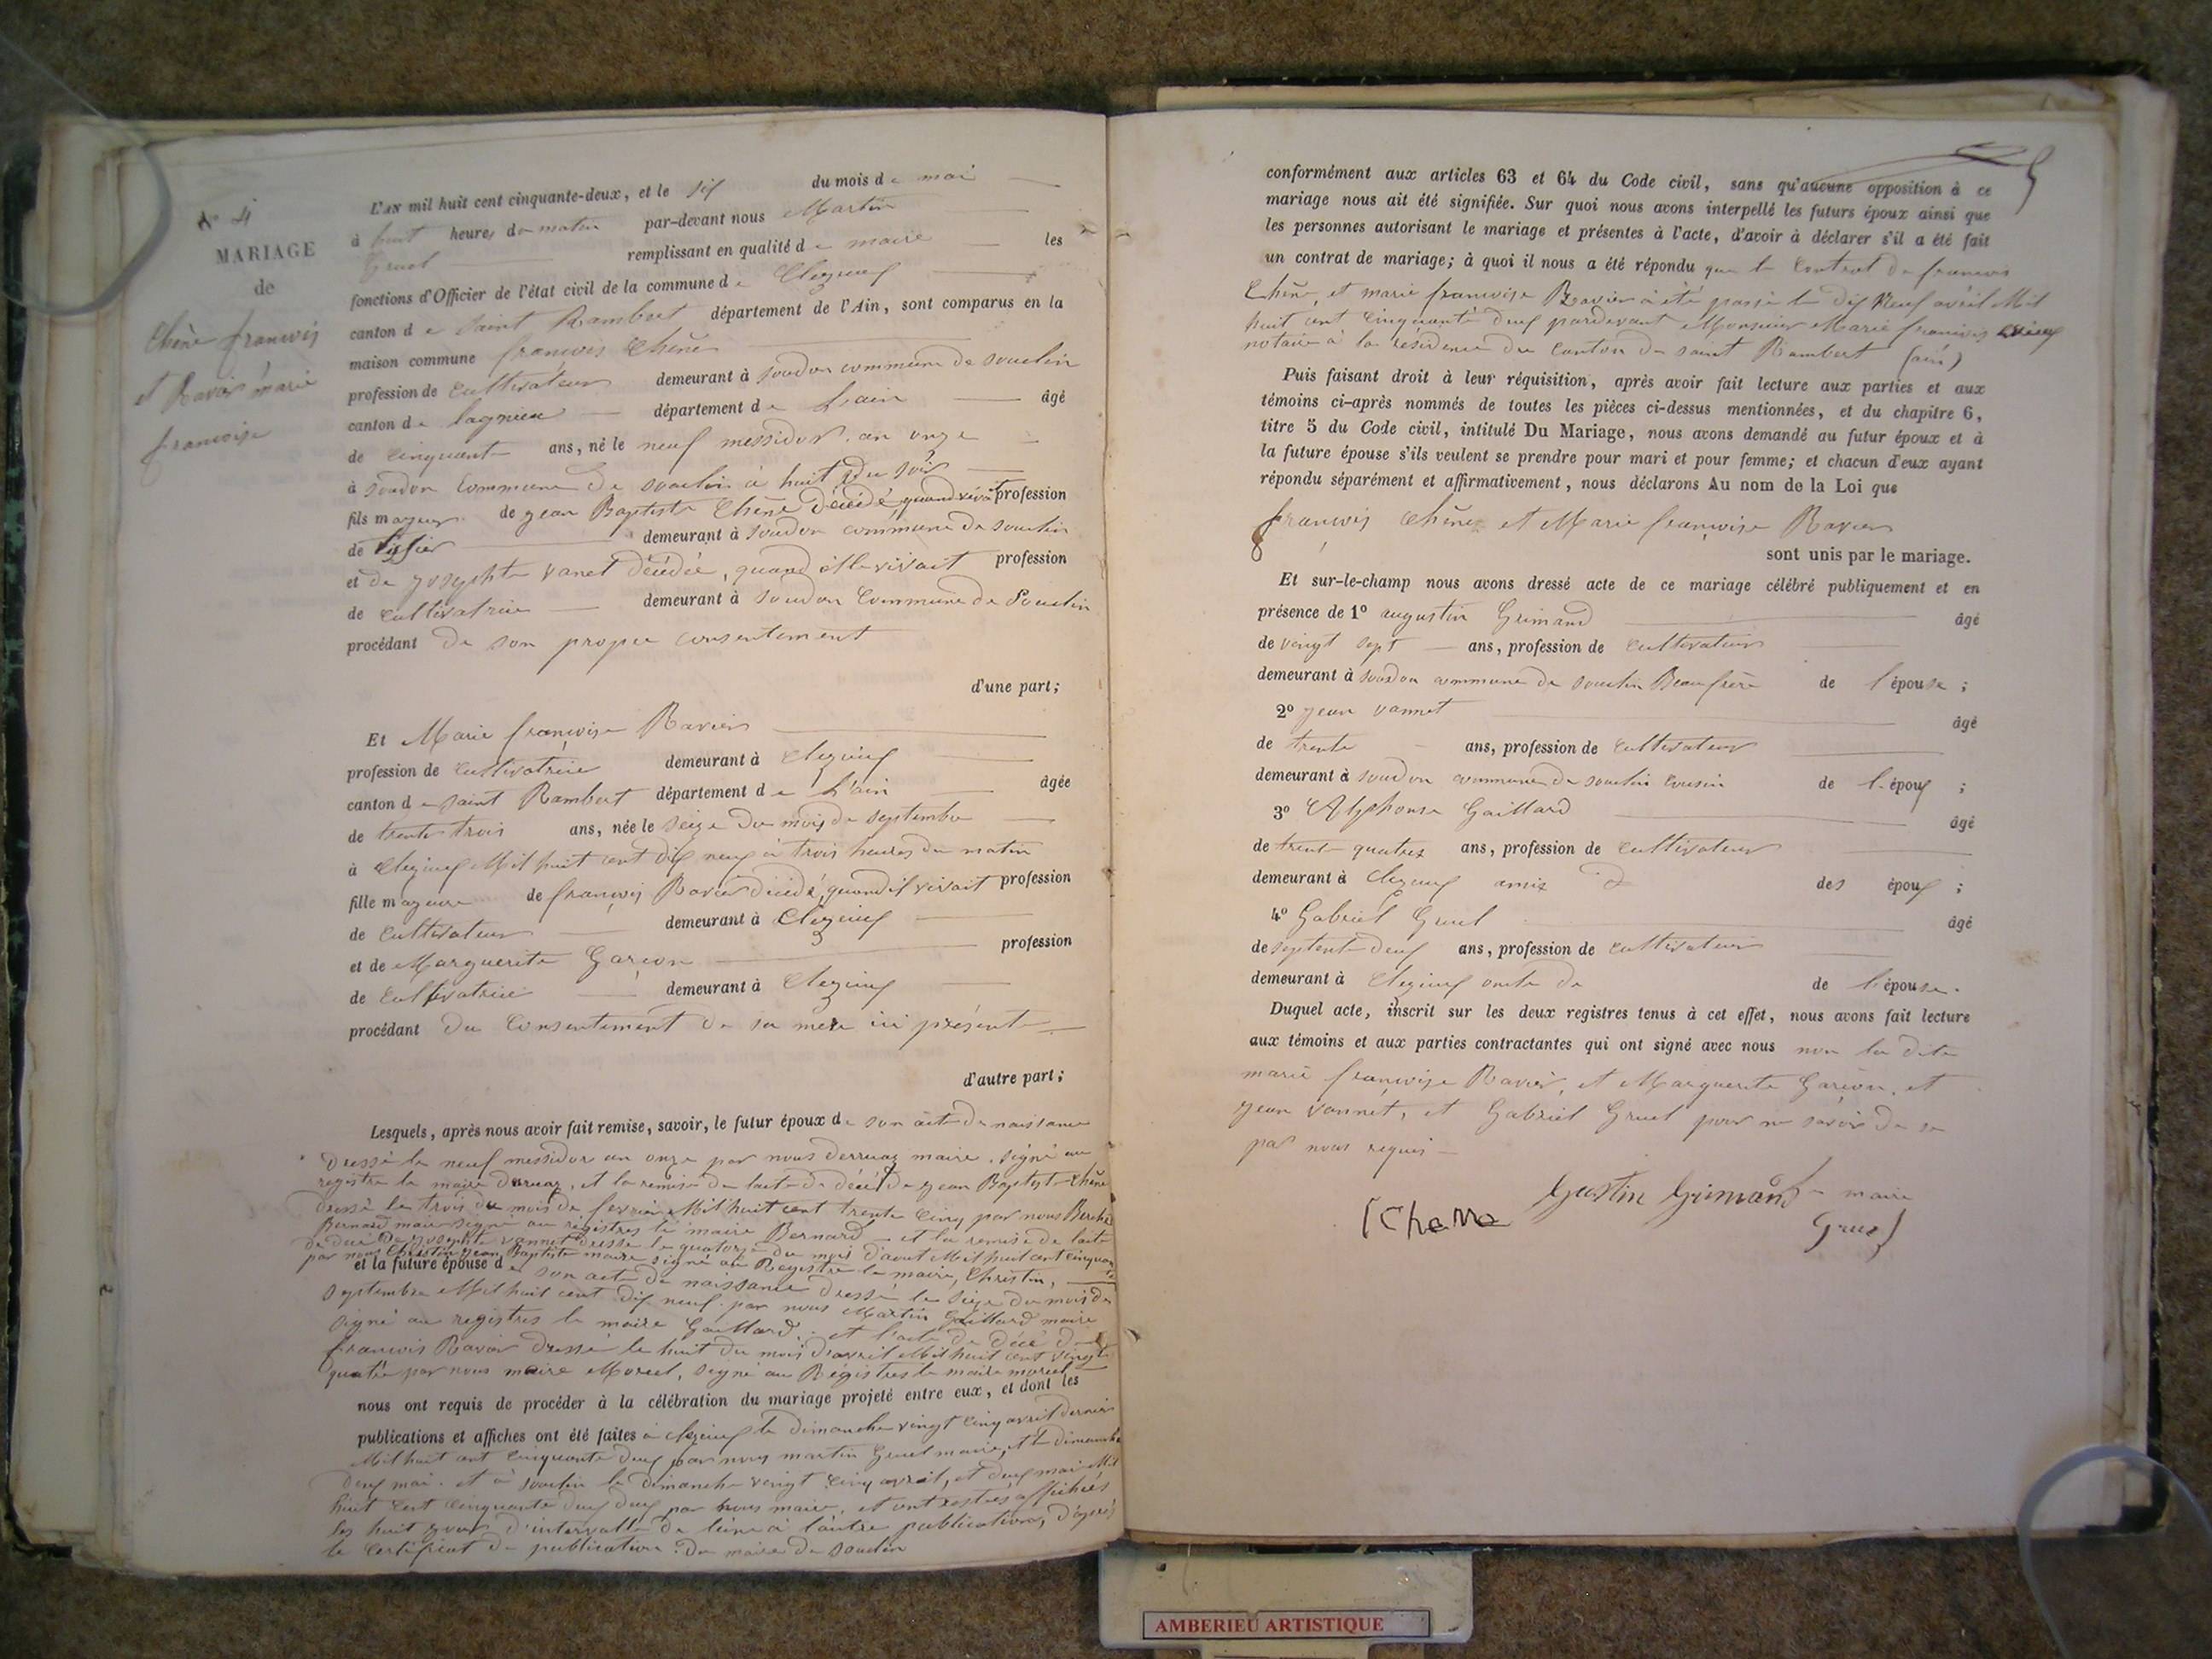 N° 4
MARIAGE
de
Chêne françois
et Ravier marie
françoise
L'AN mil huit cent cinquante-deux, et le six du mois de mai
à huit heures du matin par-devant nous Martin
Gruel remplissant en qualité de maire les
fonctions d'Officier de l'état civil de la commune de Cleyzieux
canton de saint Rambert département de l'Ain, sont comparus en la
maison commune françois Chêne
profession de cultivateur demeurant à soudon commune de souclin
canton de lagnieu département de L'ain âgé
de cinquante ans, né le neuf messidor an onze
à soudon commune de souclin à huit du soir
fils mayeur de jean Baptiste Chêne décédé, quand vivait profession
de tissier demeurant à soudon commune de souclin
et de josephte vanet décédée, quand elle vivait profession
de cultivatrice demeurant à soudon commune de Souclin
procédant de son propre consentement
d'une part;
Et Marie françoise Ravier
profession de cultivatrice demeurant à Cleyzieux
canton de saint Rambert département de L'ain âgée
de trente trois ans, née le seize du mois de septembre
à Cleyzieux Mil huit cent dix neuf à trois heures du matin
fille mayeure de françois Ravier décédé, quand il vivait profession
de cultivateur demeurant à Cleyzieux
et de Marguerite Garçon profession
de cultivatrice demeurant à Cleyzieux
procédant du consentement de sa mere ici présente
d'autre part;
Lesquels, après nous avoir fait remise, savoir, le futur époux de son acte de naissance
dressé le neuf messidor an onze par nous derruaz maire, signé au
registre le maire derruaz, et la remise de l'acte de décé de jean Baptiste Chêne
dressé le trois du mois de fevrier Mil huit cent trente cinq par nous
Bernard maire signé au registres le maire Bernard et la remise de l'acte
de décé de josephte vannet dressé le quatorze du mois d'aout Mil huit cent cinquante
par nous Christin jean Baptiste maire signé au Registre le maire, Christin,
et la future épouse de son acte de naissance dressé le seize du mois de
septembre Mil huit cent dix neuf par nous Martin Gaillard maire
signé au registres le maire Gaillard, et l'acte de décé de
françois Ravier dressé le huit du mois d'avril Mil huit cent vingt
quatre par nous maire Morel, signé au Régistres le maire morel
nous ont requis de procéder à la célébration du mariage projeté entre eux, et dont les
publications et affiches ont été faites à cleyzieux le dimanche vingt cinq avril dernier
Mil huit cent cinquante deux par nous martin Gruel maire, et le dimanche
deux mai et à souclin le dimanche vingt cinq avril, et deux mai Mil
huit cent cinquante deux par nous maire, et ont restés affichés
les huit jours d'intervalle de l'une à l'autre publications, d'après
le certificat de publication du maire de souclin
conformément aux articles 63 et 64 du Code civil, sans qu'aucune opposition à ce
mariage nous ait été signifiée. Sur quoi nous avons interpellé les futurs époux ainsi que
les personnes autorisant le mariage et présentes à l'acte, d'avoir à déclarer s'il a été fait
un contrat de mariage; à quoi il nous a été répondu que le contrat de francois
Chêne, et marie françoise Ravier a été passé le dix Neuf avril Mil
huit cent cinquante deux pardevant Monsieur Marie françois
notaire à la résidence du canton de saint Rambert (ain)
Puis faisant droit à leur réquisition, après avoir fait lecture aux parties et aux
témoins ci-après nommés de toutes les pièces ci-dessus mentionnées, et du chapitre 6,
titre 5 du Code civil, intitulé Du Mariage, nous avons demandé au futur époux et à
la future épouse s'ils veulent se prendre pour mari et pour femme; et chacun d'eux ayant
répondu séparément et affirmativement, nous déclarons Au nom de la Loi que
françois Chêne et Marie françoise Ravier
sont unis par le mariage.
Et sur-le-champ nous avons dressé acte de ce mariage célébré publiquement et en
présence de 1° augustin Grimand âgé
de vingt sept ans, profession de cultivateur
demeurant à soudon commune de souclin Beau frère de l'épouse ;
2° jean vannet âgé
de trente ans, profession de cultivateur
demeurant à soudon commune de souclin cousin de l'époux ;
3° Alphonse Gaillard âgé
de trente quatre ans, profession de cultivateur
demeurant à cleyzieux amis des époux ;
4° Gabriel Gruel âgé
de septente deux ans, profession de cultivateur
demeurant à Cleyzieux oncle de l'épouse.
Duquel acte, inscrit sur les deux registres tenus à cet effet, nous avons fait lecture
aux témoins et aux parties contractantes qui ont signé avec nous non la dite
marie françoise Ravier, et Marguerite Garçon, et
jean vannet, et Gabriel Gruel pour ne savoir de ce
par nous requis
f Chene Gustin Grimand maire
Gruel
AMBERIEU ARTISTIQUE